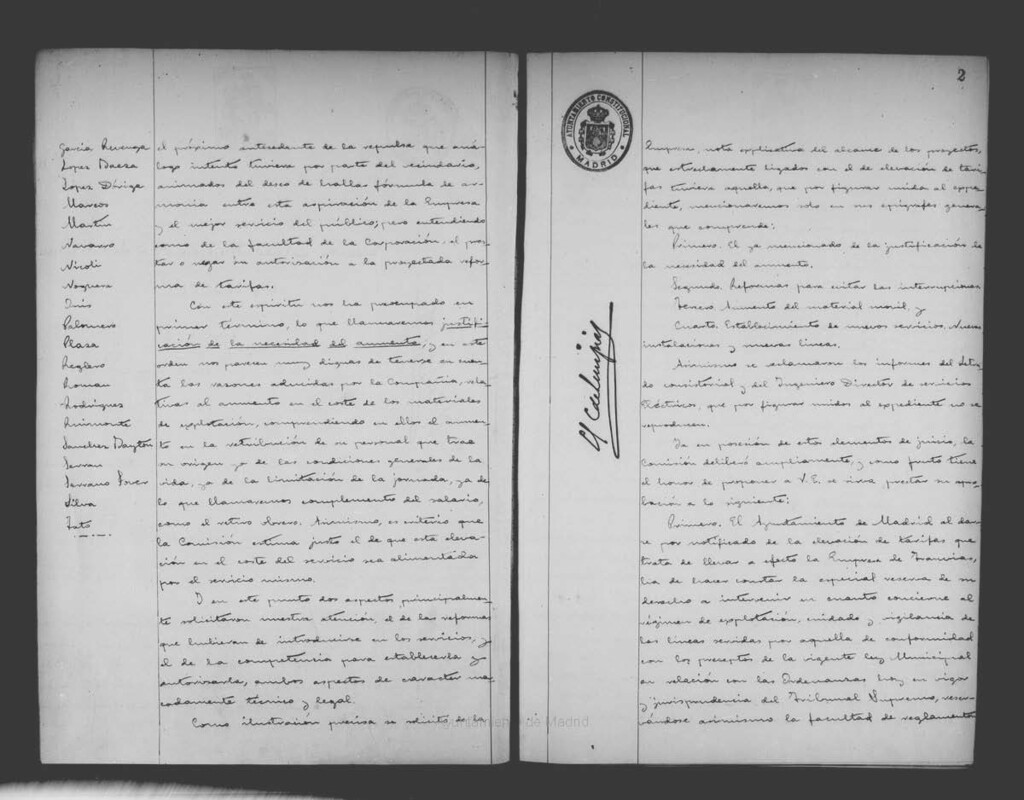 García Revenga
Lopez Baeza
Lopez Dóriga
Marcos
Martin
Navarro
Nicoli
Noguera
Palomero
Plaza
Reglero
Roman
Rodriguez
Sanchez Bayton
Serran
Serrano Jover
Silva
Tato
el próximo antecedente de la repulsa que aná-
logo intento tuviera por parte del vecindario,
animados del deseo de hallar fórmula de ar-
monia entre esta aspiración de la Empresa
y el mejor servicio del público; pero entendiendo
como de la facultad de la Corporación, el pres-
tar o negar su autorización a la proyectada refor-
ma de tarifas.
Con este espiritu nos ha preocupado en
primer término, lo que llamaremos justifi-
cación de la necesidad del aumento, y en este
orden nos parecen muy dignas de tenerse en cuen-
ta las razones aducidas por la Compañia, rela-
tivas al aumento en el coste de los materiales
de explotación, comprendiendo en ellos el aumen-
to en la retribución de su personal que trae
su origen ya de las condiciones generales de la
vida, ya de la limitación de la jornada, ya de
lo que llamaremos complemento del salario,
como el retiro obrero. Asimismo, es criterio que
la Comisión estima justo el de que esta eleva-
ción en el coste del servicio sea alimentada
por el servicio mismo.
Y en este punto dos aspectos, principalmen-
te solicitaron nuestra atención, el de las reformas
que hubieran de introducirse en los servicios, y
el de la competencia para establecerla y
autorizarla, ambos aspectos de caracter mar-
cadamente técnico y legal.
Como ilustración precisa se solicitó de la
Ayuntamiento de Madrid
AYUNTAMIENTO CONSTITUCIONAL
MADRID
2
Empresa, nota explicativa del alcance de los proyectos,
que estrechamente ligados con el de elevación de tari-
fas tuviera aquella, que por figurar unida al expe-
diente, mencionaremos solo en sus epigrafes genera-
les que comprende:
Primero. El ya mencionado de la justificación de
la necesidad del aumento.
Segundo. Reformas para evitar las interrupciones
Tercero. Aumento del material movil, y
Cuarto. Establecimiento de nuevos servicios. Nuevas
instalaciones y nuevas lineas.
Asimismo se reclamaron los informes del Letra-
do consistorial y del Ingeniero Director de servicios
Eléctricos, que por figurar unidos al expediente no se
reproducen.
Ya en posesión de estos elementos de juicio, la
Comisión deliberó ampliamente, y como fruto tiene
el honor de proponer a V.E. se sirva prestar su apro-
bación a lo siguiente:
Primero. El Ayuntamiento de Madrid al dar-
se por notificado de la elevación de tarifas que
trata de llevar a efecto la Empresa de Tranvias,
ha de hacer constar la especial reserva de su
derecho a intervenir en cuanto concierne al
régimen de explotación, cuidado y vigilancia de
las lineas servidas por aquella de conformidad
con los preceptos de la vigente ley Municipal
en relación con las Ordenanzas hoy en vigor
y jurisprudencia del Tribunal Supremo, reser-
vándose asimismo la facultad de reglamenta-